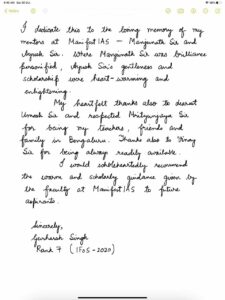 I dedicate this to the loving memory of my
mentors at Manifest IAS — Manjunath Sir and
Ayush Sir. Where Manjunath Sir was brilliance
personified, Ayush Sir's gentleness and
scholarship were heart-warming and
enlightening.
My heartfelt thanks also to dearest
Umesh Sir and respected Mrityunjaya Sir
for being my teachers, friends and
family in Bengaluru. Thanks also to Vinay
Sir for being always readily available.
I would wholeheartedly recommend
the warm and scholarly guidance given by
the faculty at Manifest IAS to future
aspirants.
Sincerely,
Singh
Rank 7 (IFoS-2020)